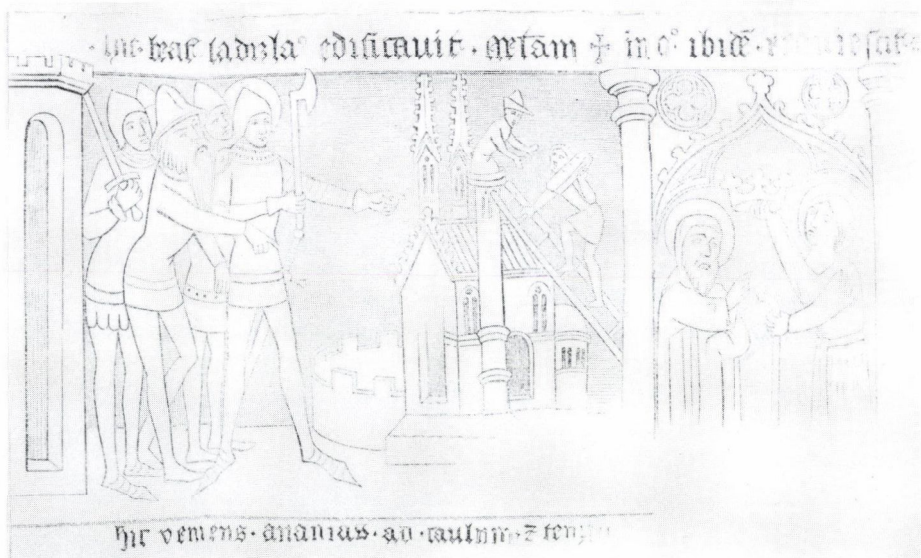 hic beat ladizla⁹ edificavit · ecc̄tam ☩ in q° ibidē · requiescit
hic veniens · ananias · ad · paulum · ⁊